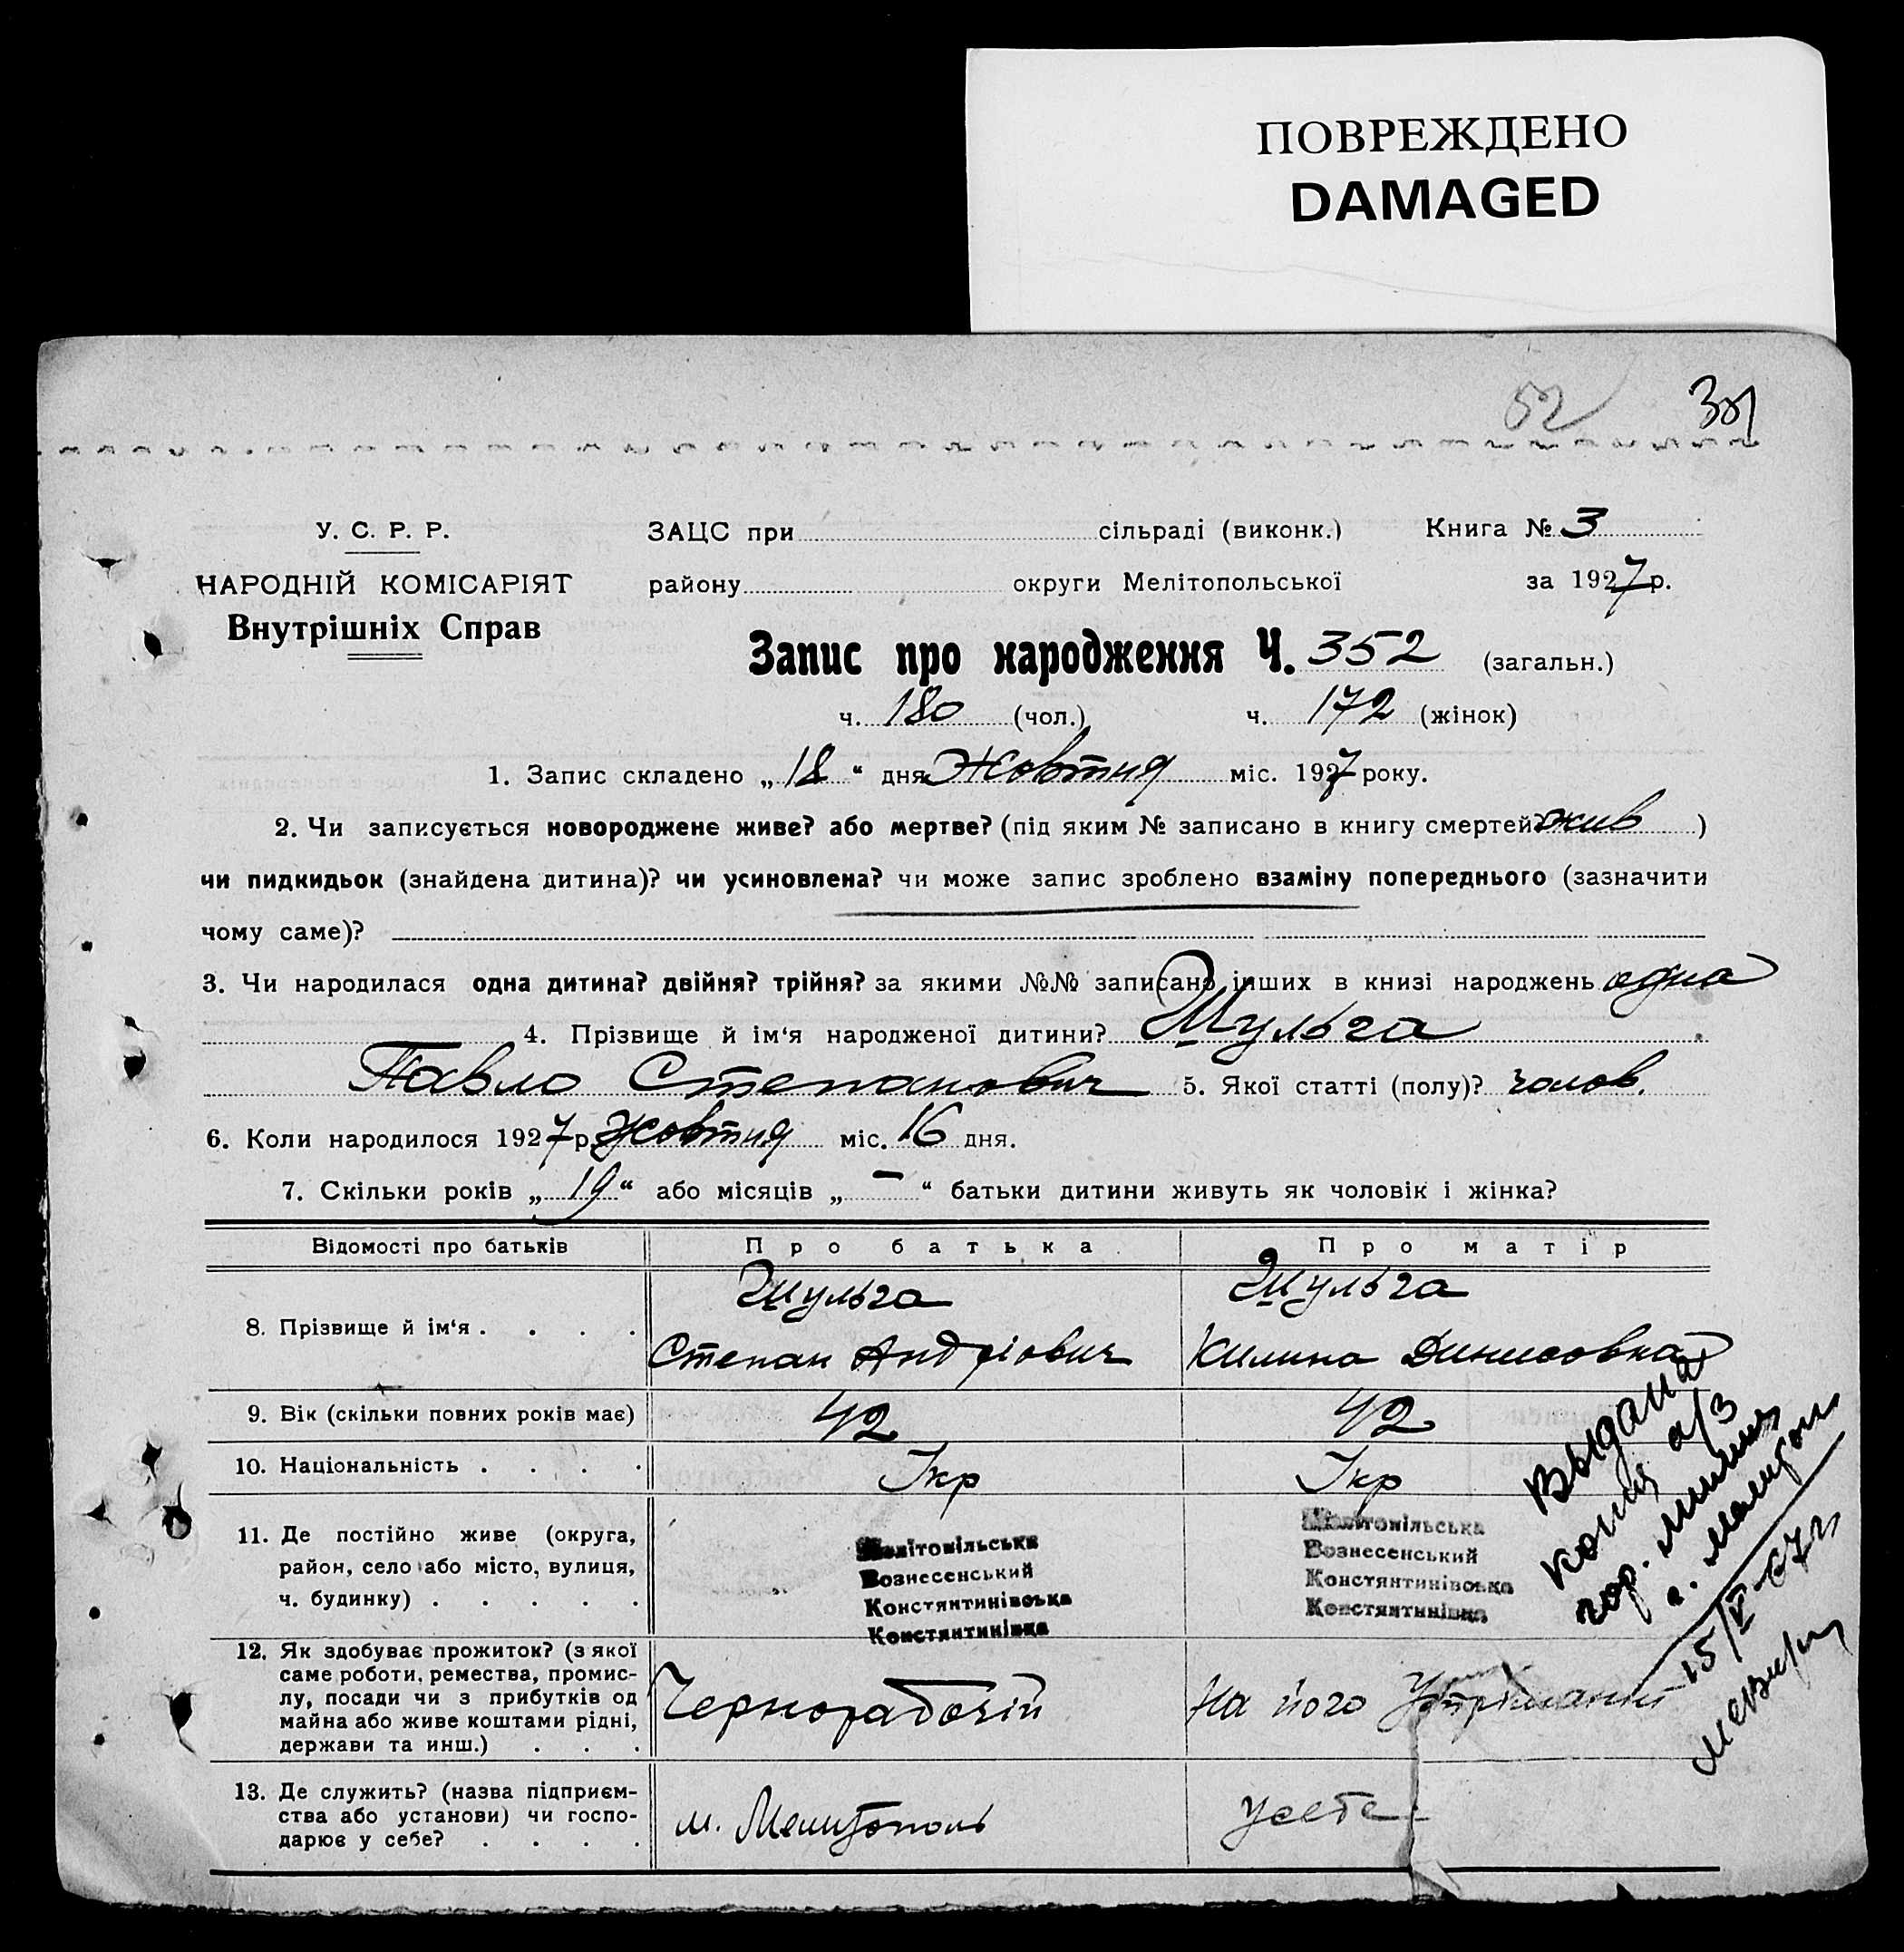 ПОВРЕЖДЕНО
DAMAGED
52
У. С. Р. Р.
НАРОДНІЙ КОМІСАРІЯТ
Внутрішніх Справ
ЗАЦС при сільраді (виконк.) Книга № 3
району округи Мелітопольської за 1927 р.
Запис про народження Ч. 352 (загальн.)
ч. 180 (чол.) ч. 172 (жінок)
1. Запис складено „18“ дня Жовтня міс. 1927 року.
2. Чи записується новороджене живе? або мертве? (під яким № записано в книгу смертей? жив )
чи пидкидьок (знайдена дитина)? чи усиновлена? чи може запис зроблено взаміну попереднього (зазначити
чому саме)?
3. Чи народилася одна дитина? двійня? трійня? за якими №№ записано інших в книзі народжень одна
4. Прізвище й ім‘я народженої дитини? Шульга
Павло Степанович 5. Якої статті (полу)? чолов.
6. Коли народилося 1927 р. Жовтня міс. 16 дня.
7. Скільки років „19“ або місяців „—“ батьки дитини живуть як чоловік і жінка?
Відомості про батьків Про батька Про матір
8. Прізвище й ім‘я . . . .
Шульга
Степан Андріович
Шульга
Килина Динисовна
9. Вік (скільки повних років має) 42 42
10. Національність . . . . Укр Укр
11. Де постійно живе (округа,
район, село або місто, вулиця,
ч. будинку) . . . . .
Мелітопільська
Вознесенський
Констянтинівська
Констянтинівка
Мелітопільська
Вознесенський
Констянтинівська
Констянтинівка
12. Як здобуває прожиток? (з якої
саме роботи, ремества, промис-
лу, посади чи з прибутків од
майна або живе коштами рідні,
держави та инш.) . . .
Чернорабочій
На його Утріманні
13. Де служить? (назва підприєм-
ства або установи) чи госпо-
дарює у себе? . . . .
м. Мелитополь
у себе
Выдана
копия а/з
гор. милиц
г. Мелитоп
15/V-67 г.